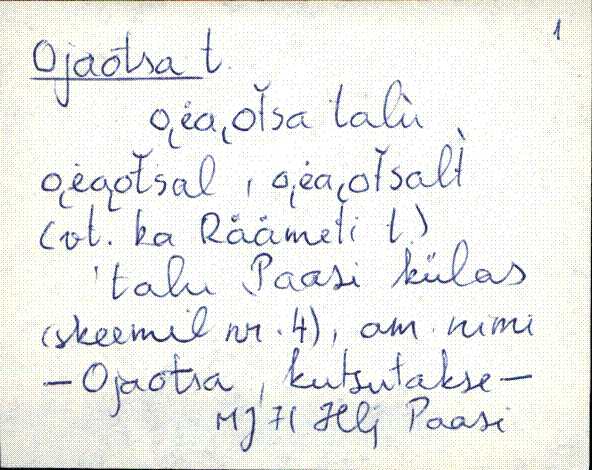 1
Ojaotsa t.
o̮ėa̮ot̆sa talù
o̮ėa̮ot̆sal, o̮ėa̮ot̆salt̀
(vt. ka Räämeti t.)
'talu Paasi külas
(skeemil nr. 4), am. nimi
— Ojaotsa, kutsutakse —
MJ 71 Hlj Paasi